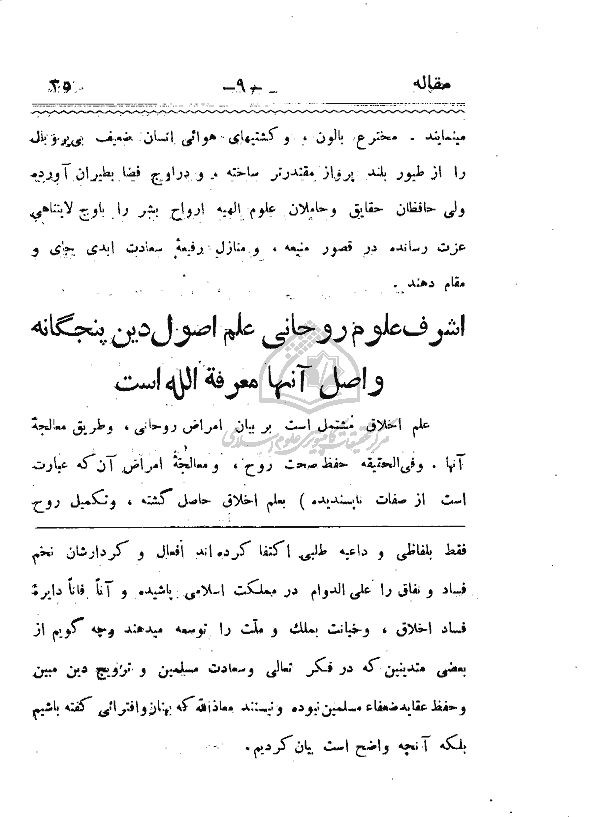 مقاله -۹- ۳۵
مینمایند . مخترع بالون ، و کشتیهای هوائی انسان ضعیف بی‌پر و بال
را از طیور بلند پرواز مقتدرتر ساخته ، و در اوج فضا بطیران آورده
ولی حافظان حقایق و حاملان علوم الهیه ارواح بشر را باوج لایتناهی
عزت رسانده در قصور منیعه ، و منازل رفیعهٔ سعادت ابدی جای و
مقام دهند .
اشرف علوم روحانی علم اصول دین پنجگانه
و اصل آنها معرفة الله است
علم اخلاق مشتمل است بر بیان امراض روحانی ، وطریق معالجهٔ
آنها . وفی‌الحقیقه حفظ صحت روح ، و معالجهٔ امراض آن که عبارت
است از صفات ناپسندیده ) بعلم اخلاق حاصل گشته ، وتکمیل روح
فقط بلفاظی و داعیه طلبی اکتفا کرده‌اند افعال و کردارشان تخم
فساد و نفاق را علی الدوام در مملکت اسلامی پاشیده و آناً فاناً دایرهٔ
فساد اخلاق ، وخیانت بملك و ملّت را توسعه میدهند وچه گویم از
بعضی متدینین که در فکر تعالی وسعادت مسلمین و ترویج دین مبین
و حفظ عقاید ضعفاء مسلمین نبوده و نیستند معاذالله که بهتان و افترائی گفته باشیم
بلکه آنچه واضح است بیان کردیم.
مرکز تحقیقات کامپیوتری علوم اسلامی